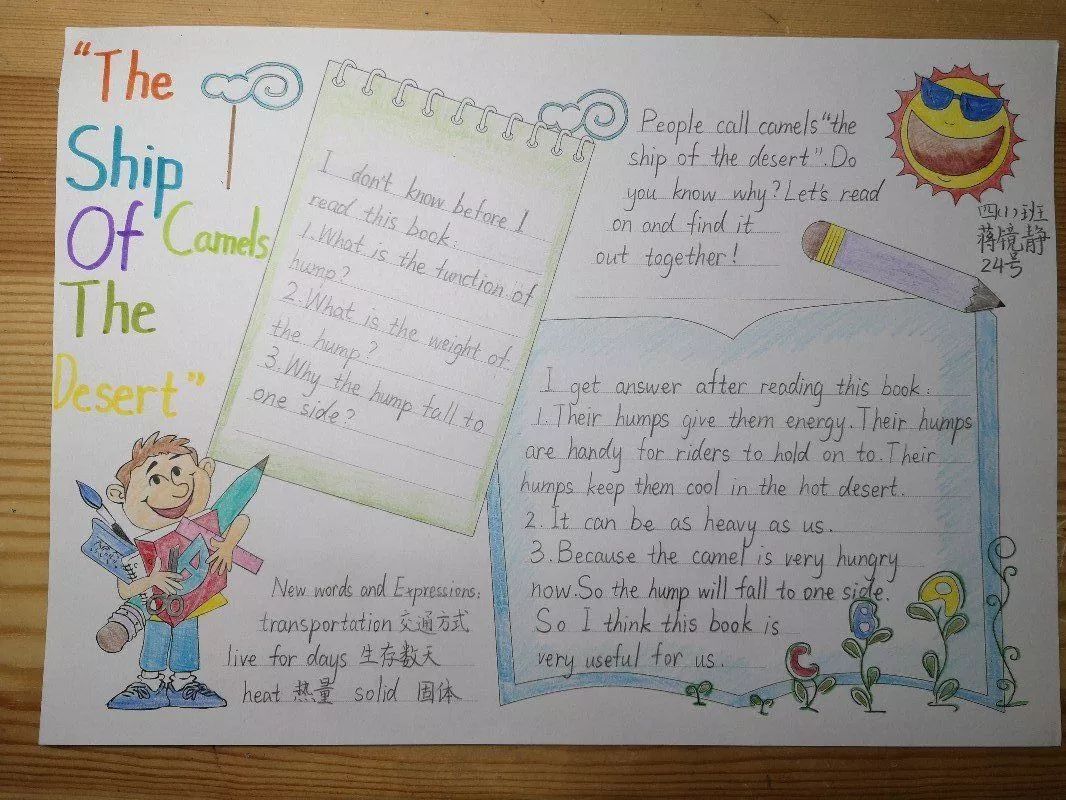 "The
Ship
Of Camels
The
Desert"
I don't know before I
read this book:
1.What is the function of
hump?
2.What is the weight of
the hump?
3.Why the hump fall to
one side?
People call camels "the
ship of the desert".Do
you know why? Let's read
on and find it
out together!
四(1)班
蒋镜静
24号
I get answer after reading this book:
1.Their humps give them energy.Their humps
are handy for riders to hold on to.Their
humps keep them cool in the hot desert.
2.It can be as heavy as us.
3.Because the camel is very hungry
now.So the hump will fall to one side.
So I think this book is
very useful for us.
New words and Expressions:
transportation 交通方式
live for days 生存数天
heat 热量 solid 固体
C B a